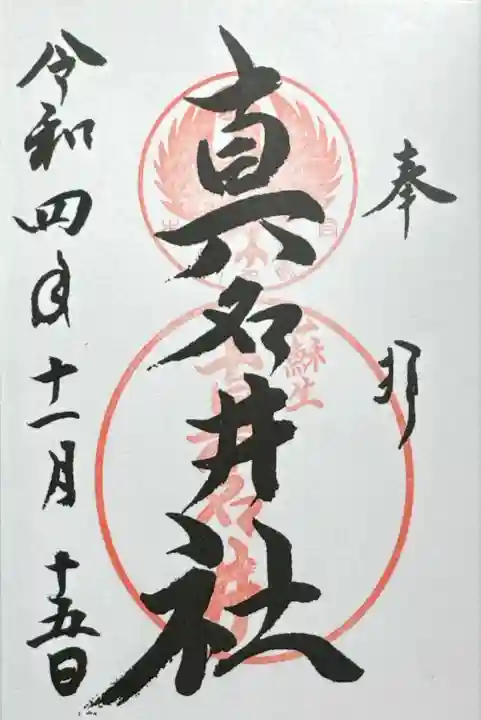 奉拝
真名井社
令和四年十一月十五日
蘇生